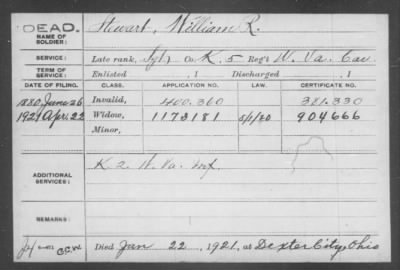 DEAD.
NAME OF SOLDIER:
Stewart, William R.
SERVICE:
Late rank, Sgt, Co. K, 5 Reg't W. Va. Cav
TERM OF SERVICE:
Enlisted , 1 Discharged , 1
DATE OF FILING. CLASS. APPLICATION NO. LAW. CERTIFICATE NO.
1880, June 26 Invalid, 400.360 381.330
1921 Apr. 22 Widow, 1173181 5/1/20 904666
Minor,
ADDITIONAL SERVICES:
K. 2. W. Va. Inf.
REMARKS:
Died Jan 22, 1921, at Dexter City, Ohio